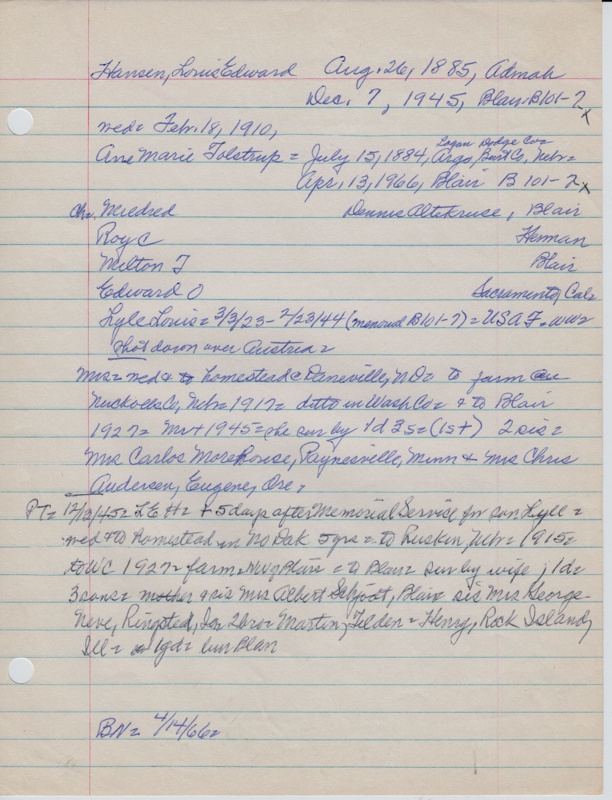 Hansen, Louis Edward Aug. 26, 1885, Admah
Dec. 7, 1945, Blair. B101-7 x
wed = Feb. 18, 1910,
Logan Dodge Co =
Ane Marie Tolstrup = July 15, 1884, Argo, Burt Co, Nebr =
Apr. 13, 1966, Blair B 101-7 x
Ch, Mildred Dennis Altekruse, Blair
Roy C Herman
Melton T Blair
Edward O Sacramento, Cal =
Lyle Louis = 3/3/23 - 2/23/44 (memorial B101-7) = USAF = WW2
shot down over Austria =
Mrs = wed & to homestead @ Daneville, ND = to farm
Nuckolls Co, Nebr = 1917 = ditto in Wash Co = & to Blair
1927 = Mr + 1945 = she sur by 1d 3s = (1s+) 2 sis =
Mrs Carlos Morehouse, Paynesville, Minn & Mrs Chris
Andersen, Eugene, Ore =
PT = 12/13/45 = LEH = + 5 days after Memorial Service for son Lyle =
wed & to homestead in No Dak 5 yrs = to Ruskin, Nebr = 1915 =
to WC 1927 = farm = nwof Blair = to Blair = sur by wife, 1d =
3 sons = mother & sis Mrs Albert Schjodt, Blair sis Mrs George
Neve, Ringsted, Ia = 2 bro = Martin, Tilden = Henry, Rock Island,
Ill = 1gd = bur Blair
BN = 4/14/66 =